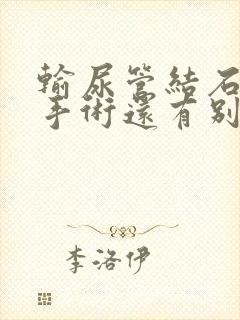 輸尿管結石
手術還有別
李洛伊